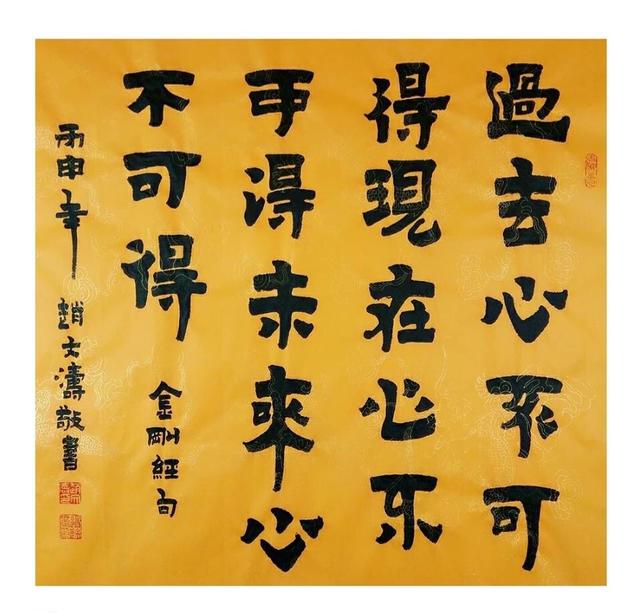 過去心不可
得現在心不
可得未來心
不可得
金剛經句
丙申年 趙文濤敬書